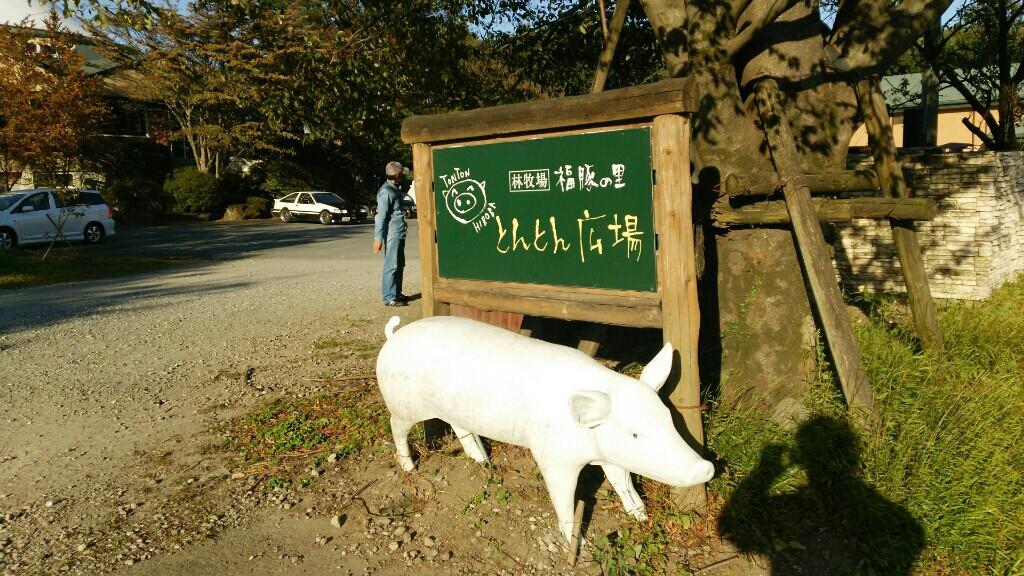 TonTon
HIROBA
林牧場 福豚の里
とんとん広場